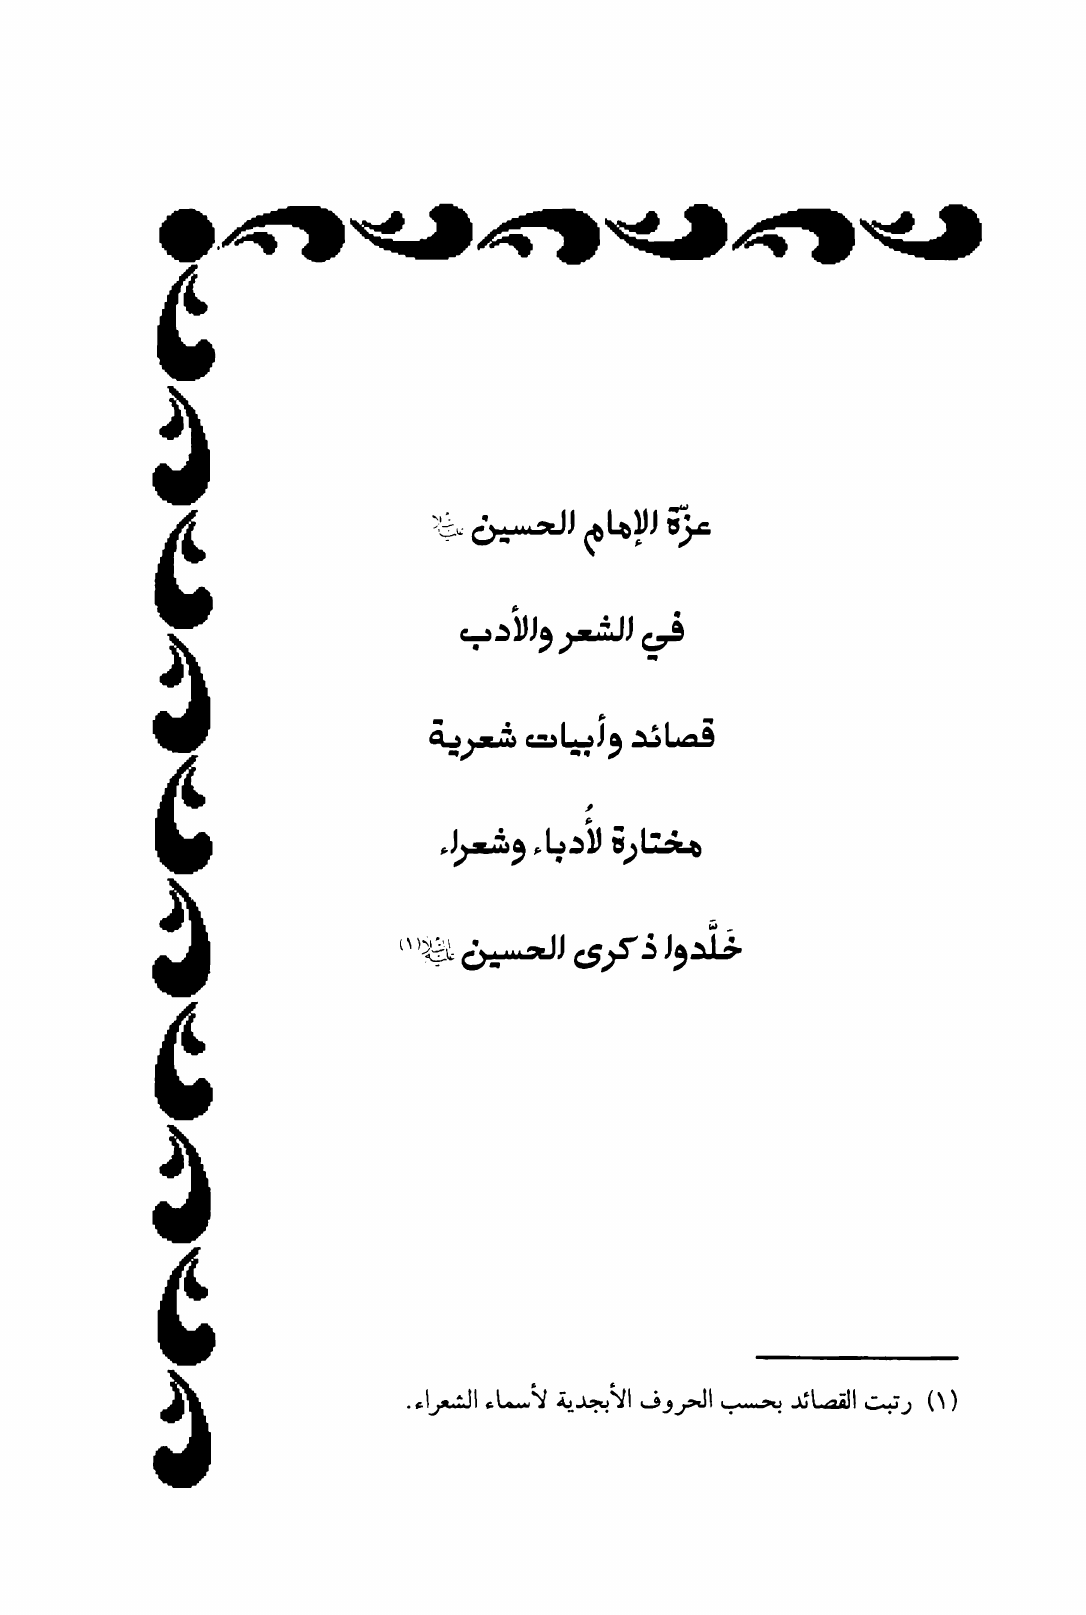 عزّة الإمام الحسين عليه السلام
في الشعر والأدب
قصائد وأبيات شعرية
مختارة لأُدباء وشعراء
خَلَّدوا ذكرى الحسين عليه السلام (١)
(١) رتبت القصائد بحسب الحروف الأبجدية لأسماء الشعراء.